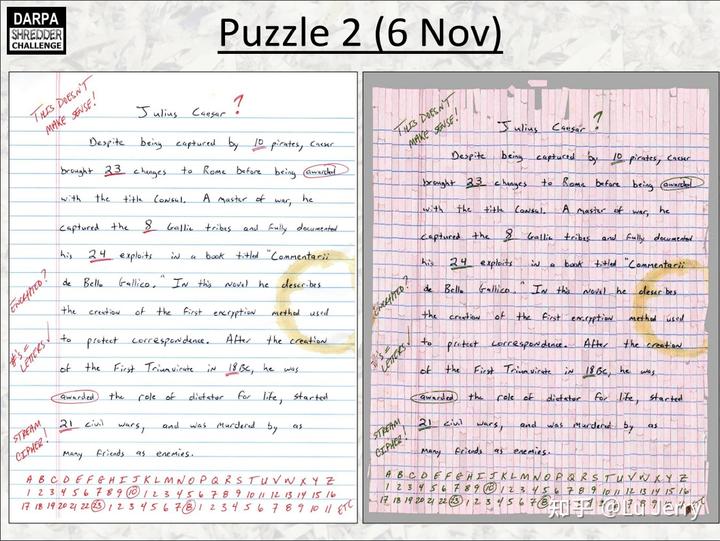 DARPA
SHREDDER
CHALLENGE
Puzzle 2 (6 Nov)
THIS DOESN'T
MAKE SENSE!
Julius Caesar ?
Despite being captured by 10 pirates, Caesar
brought 23 changes to Rome before being awarded
with the title Consul. A master of war, he
captured the 8 Gallic tribes and fully documented
his 24 exploits in a book titled "Commentarii
de Bello Gallico." In this novel he describes
ENCRYPTED?
the creation of the first encryption method used
to protect correspondence. After the creation
#'s =
LETTERS!
of the First Triumvirate in 18 BC, he was
awarded the role of dictator for life, started
21 civil wars, and was murdered by as
STREAM
CIPHER!
many friends as enemies.
A B C D E F G H I J K L M N O P Q R S T U V W X Y Z
1 2 3 4 5 6 7 8 9 10 1 2 3 4 5 6 7 8 9 10 11 12 13 14 15 16
17 18 19 20 21 22 23 1 2 3 4 5 6 7 8 1 2 3 4 5 6 7 8 9 10 11 ETC
THIS DOESN'T
MAKE SENSE!
Julius Caesar ?
Despite being captured by 10 pirates, Caesar
brought 23 changes to Rome before being awarded
with the title Consul. A master of war, he
captured the 8 Gallic tribes and fully documented
his 24 exploits in a book titled "Commentarii
de Bello Gallico." In this novel he describes
ENCRYPTED?
the creation of the first encryption method used
to protect correspondence. After the creation
#'s =
LETTERS!
of the First Triumvirate in 18 BC, he was
awarded the role of dictator for life, started
21 civil wars, and was murdered by as
STREAM
CIPHER!
many friends as enemies.
A B C D E F G H I J K L M N O P Q R S T U V W X Y Z
1 2 3 4 5 6 7 8 9 10 1 2 3 4 5 6 7 8 9 10 11 12 13 14 15 16
17 18 19 20 21 22 23 1 2 3 4 5 6 7 8
知乎 @Lu Jerry